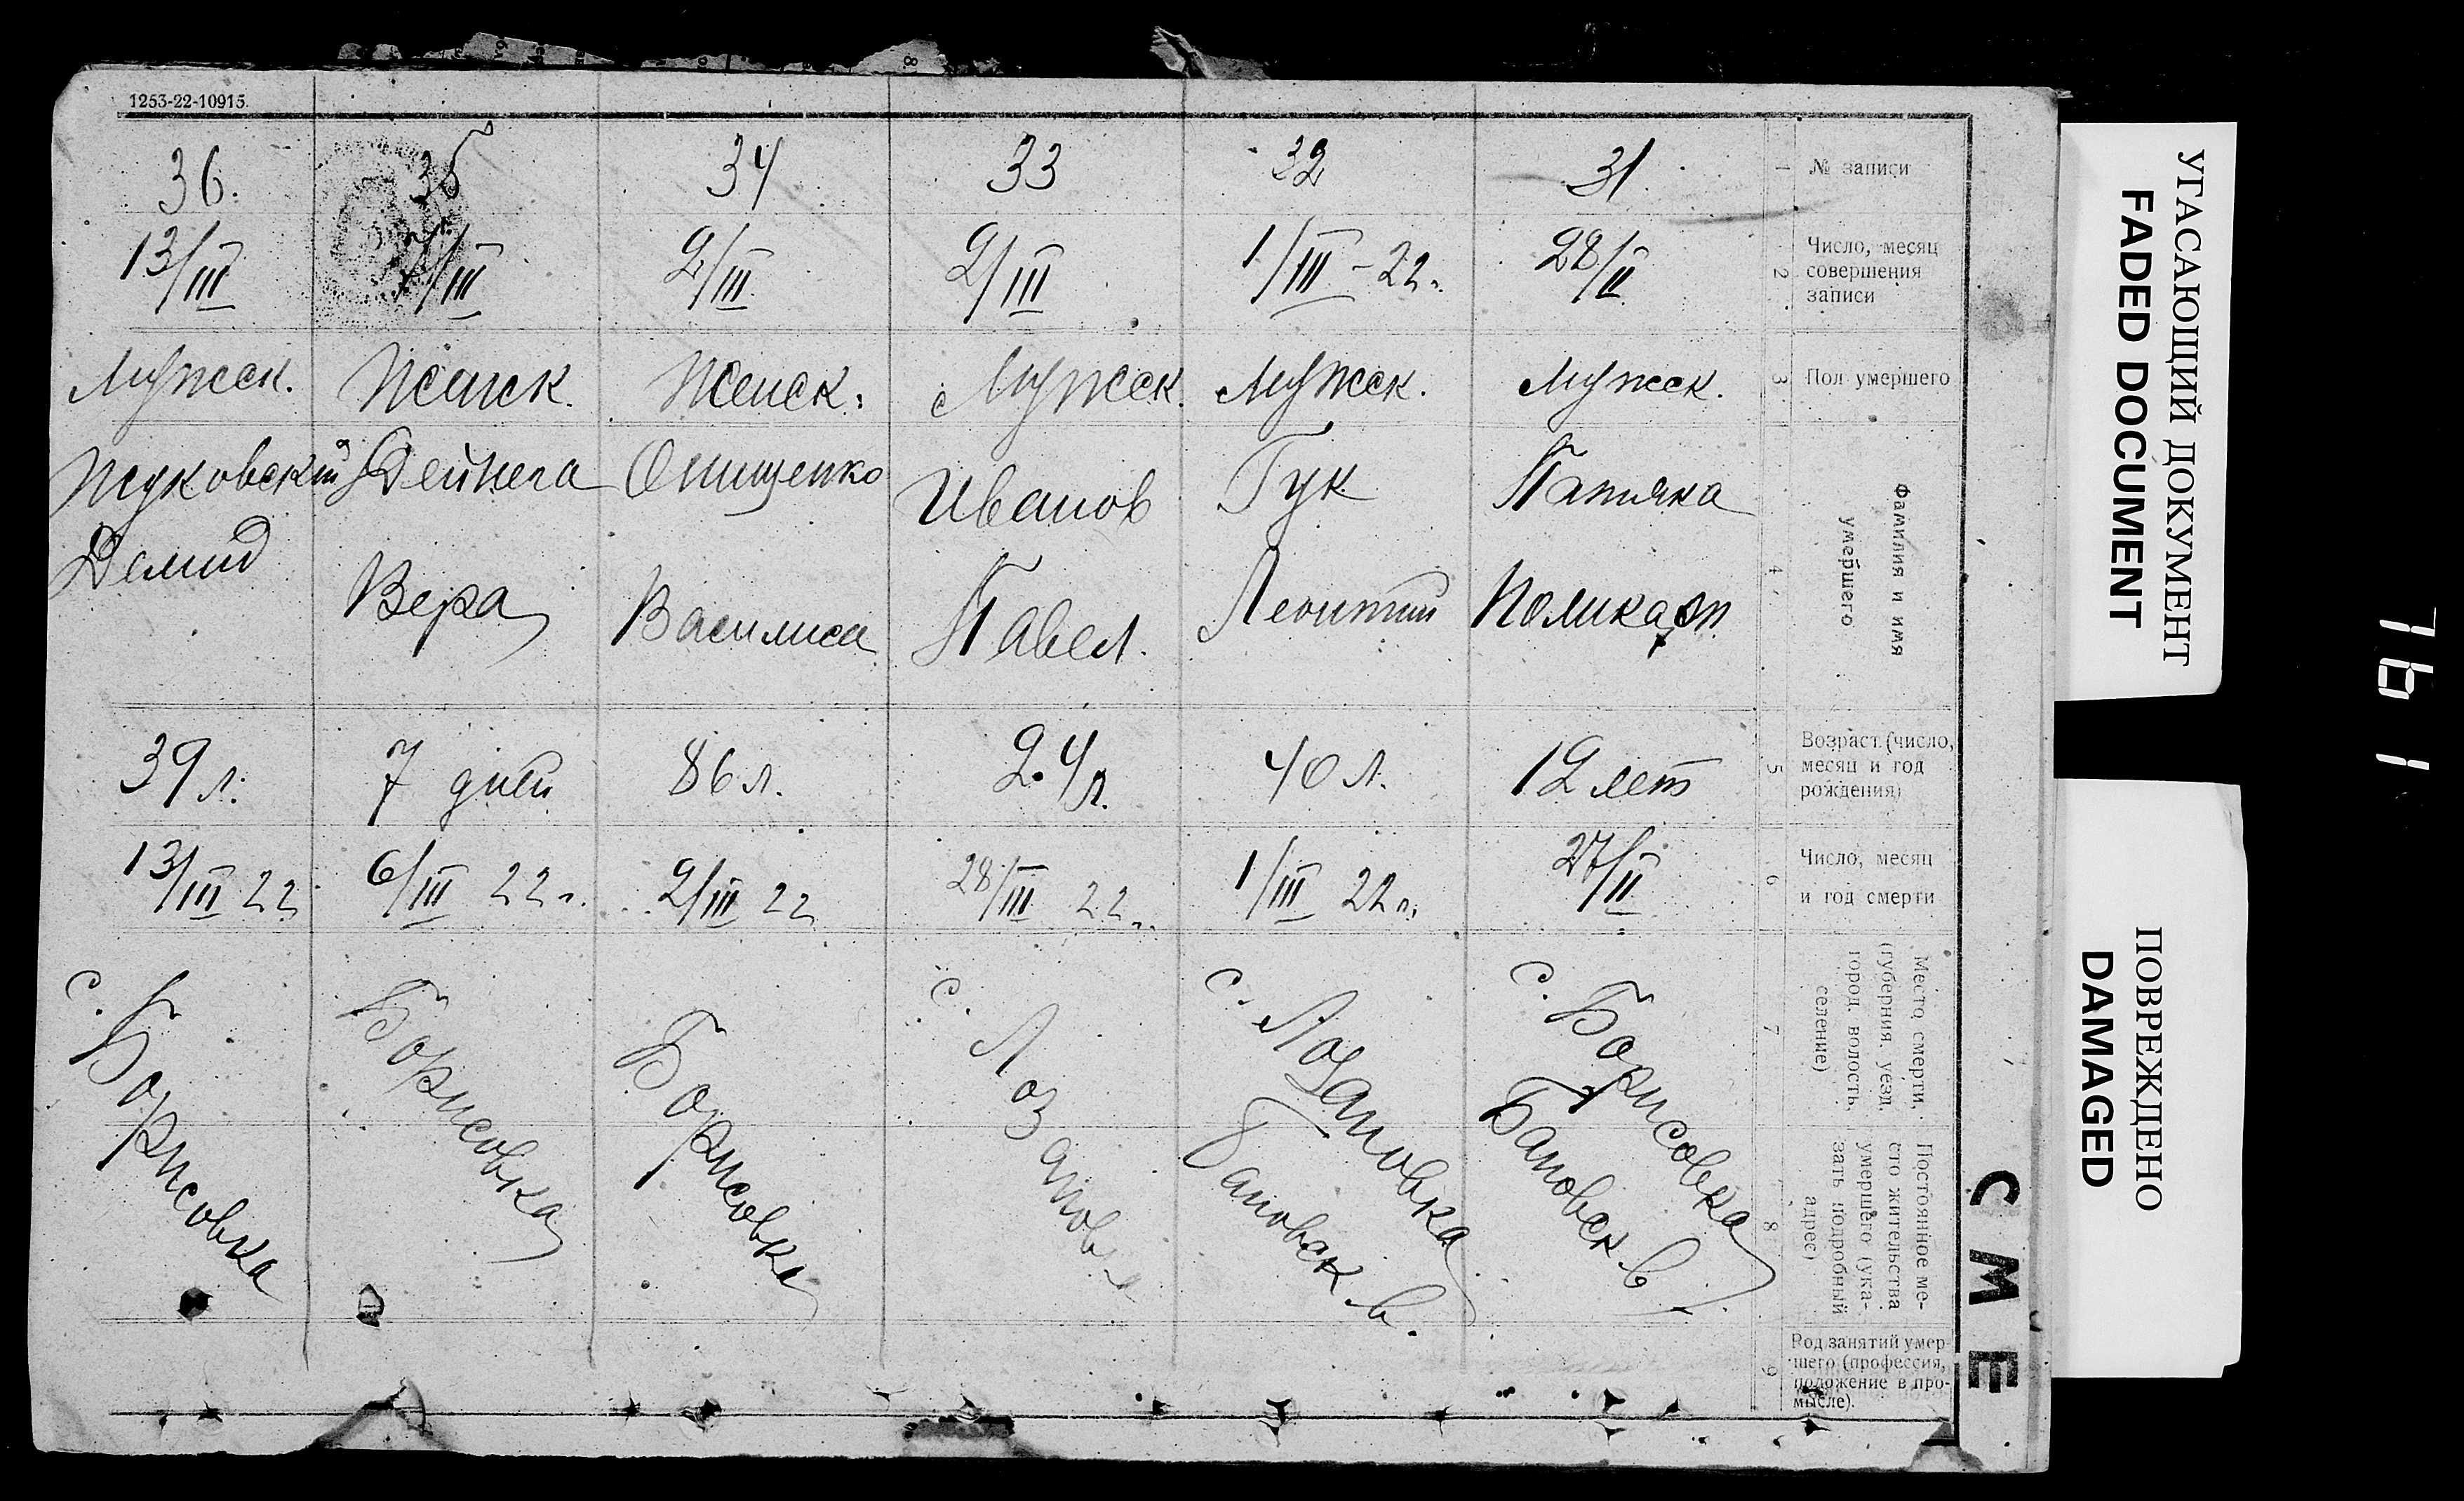 1253-22-10915.
36.
35
34
33
32
31
№ записи
1
13/III
7/III
2/III
2/III
1/III – 22г.
28/II
Число, месяц
совершения
записи
2
Мужеск.
Женск.
Женск.
Мужеск.
Мужеск.
Мужеск.
Пол умершего
3
Жуковский
Демид
Дейнега
Вера
Онищенко
Василиса
Иванов
Павел.
Гук
Леонтий
Папяка
Поликарп.
Фамилия и имя
умершего
4
39 л.
7 дней
86 л.
24 л.
40 л.
12 лет
Возраст (число,
месяц и год
рождения)
5
13/III 22
6/III 22 г.
2/III 22
28/III 22 г.
1/III 22 г.
27/II
Число, месяц
и год смерти
6
с. Борисовка
Борисовка
Борисовка
с. Лозановка
с. Лозановка
Бановск. в.
с. Борисовка
Бановск в.
Место смерти,
(губерния, уезд,
город, волость,
селение)
7
Постоянное ме-
сто жительства
умершего (ука-
зать подробный
адрес)
8
Род занятий умер-
шего (профессия,
положение в про-
мысле).
9
СМЕ
УГАСАЮЩИЙ ДОКУМЕНТ
FADED DOCUMENT
ПОВРЕЖДЕНО
DAMAGED
761